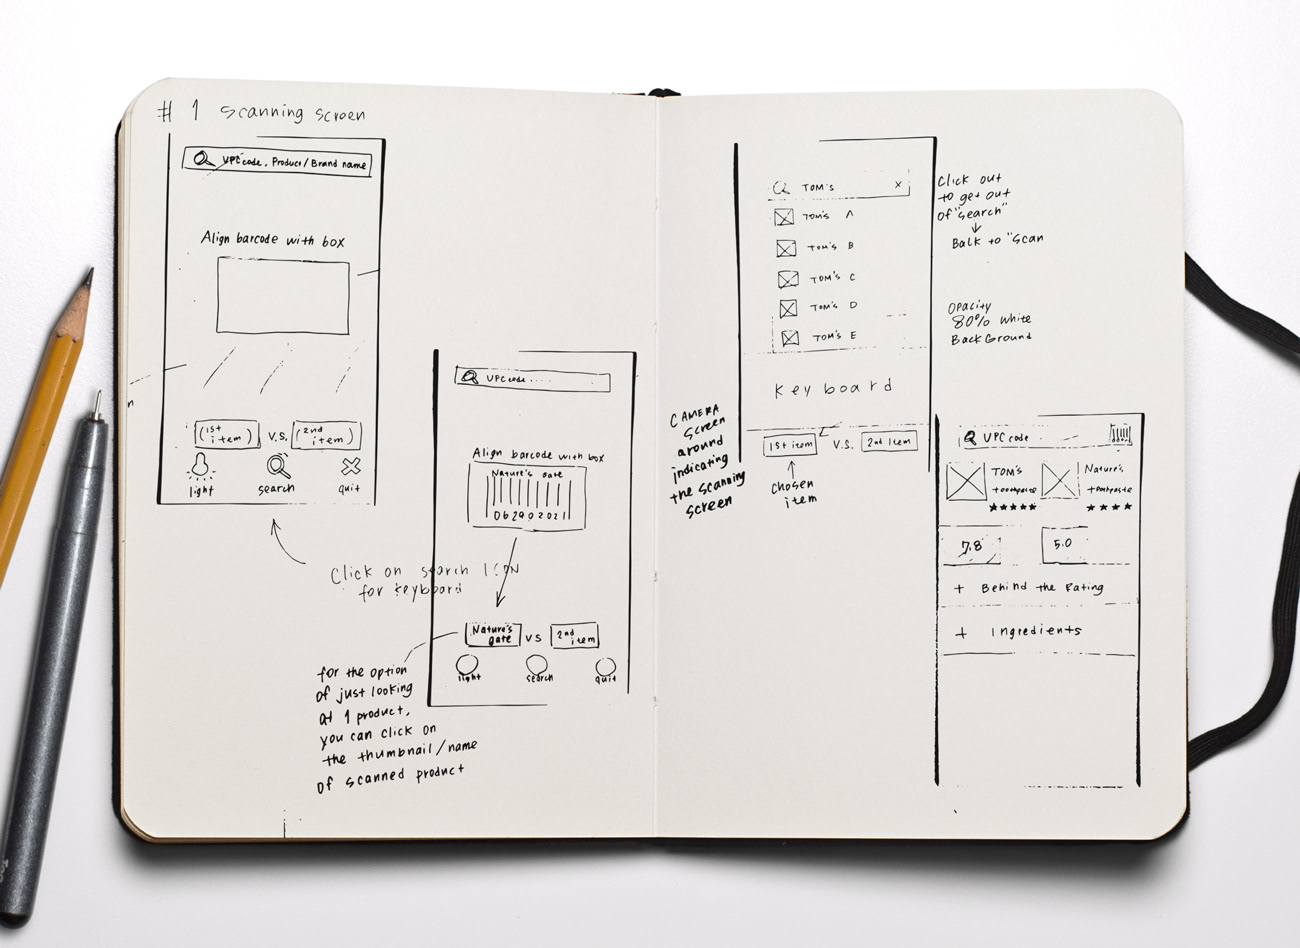 # 1 Scanning Screen
UPC code, Product/Brand name
Align barcode with box
(1st item) V.S. (2nd item)
light search quit
Click on search ICON
for keyboard
UPC code .....
Align barcode with box
Nature's Gate
062902021
Nature's gate VS 2nd item
light search quit
for the option
of just looking
at 1 product,
you can click on
the thumbnail/name
of scanned product
TOM'S X
TOM'S A
TOM'S B
TOM'S C
TOM'S D
TOM'S E
Keyboard
1st item V.S. 2nd Item
Chosen
item
Click out
to get out
of "search"
Back to "Scan
Opacity
80% White
BackGround
CAMERA
Screen
around
indicating
the scanning
screen
UPC code
TOM'S Nature's
toothpaste toothpaste
★★★★★ ★★★★
7.8 5.0
+ Behind the Rating
+ Ingredients